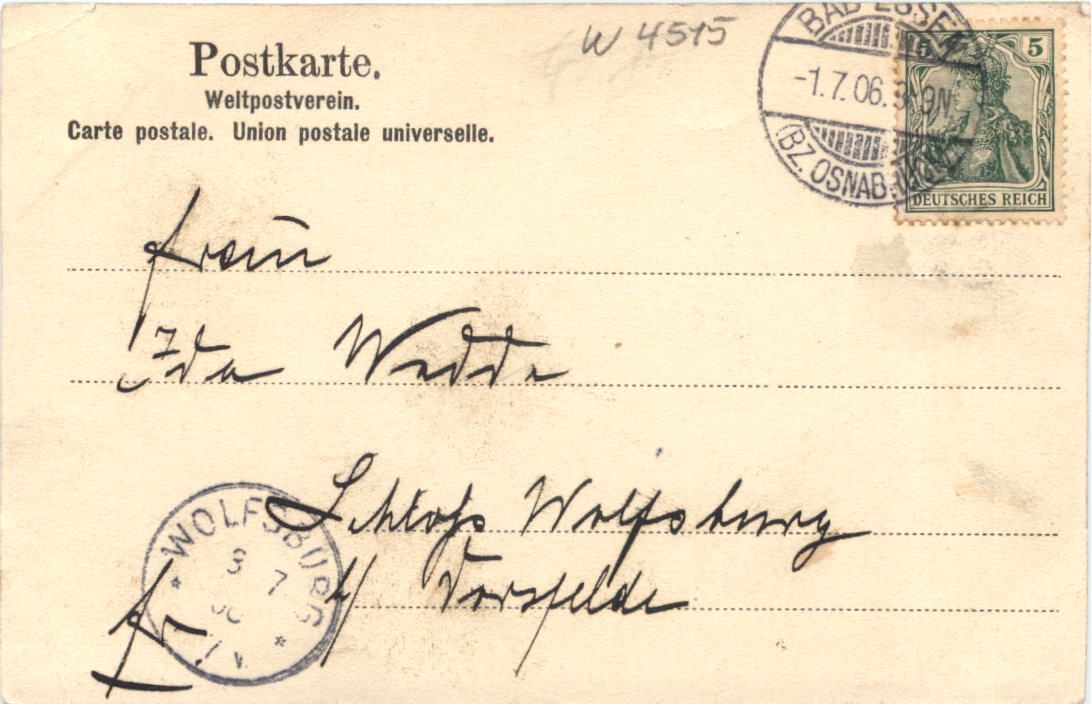 W 4515
Postkarte.
Weltpostverein.
Carte postale. Union postale universelle.
BAD ESSEN
-1.7.06. 8-9N
(BZ. OSNABRÜCK)
5 5
DEUTSCHES REICH
Ida Wedde
Schloss Wolfsburg
b/ Vorsfelde
fr
WOLFSBURG
3 7